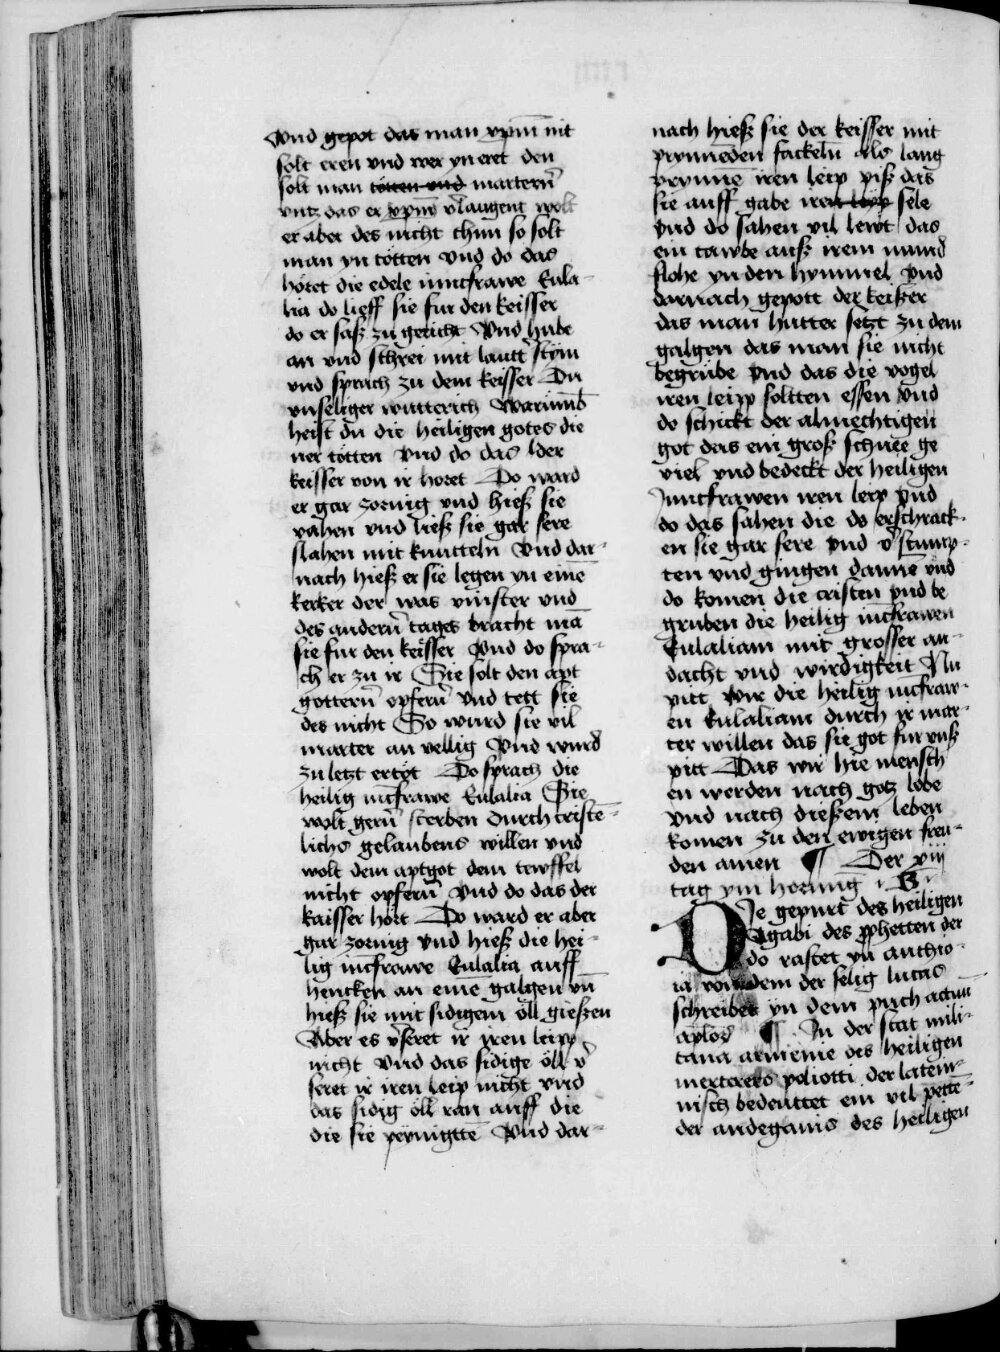 Vnd gepot das man xpm̄ nit
solt eren vnd wer yn eret den
solt man totten vnd martern̄
vntz das er xpm̄ v̉laugent wolt
er aber des nicht thun so solt
man yn totten Vnd do das
horet die edele iunckfrawe Eula-
lia do lieff sie fur den keisser
do er sasz zu gericht Vnd hube
an vnd schrei mit lautt stym
vnd sprach zu dem keisser Du
vnseliger wutterich Warumb
heist du die heiligen gotes die
ner totten Vnd do das der
keisser von ir horet Do ward
er gar zornig vnd hiesz sie
vahen vnd liesz sie gar sere
slahen mit knutteln Vnd dar-
nach hiesz er sie legen yn eine̅
kerker der was vinster vnd
des andern̄ tages bracht ma̅
sie fur den keisser Vnd do spra-
ch er zu ir Sie solt den apt
gottern̄ opfern̄ Vnd tett sie
des nicht So wurd sie vil
marter an vellig Vnd wurd
zu letzt ertot Do sprach die
heilig iu̅cfrawe Eulalia Sie
wolt gern̄ sterben durch criste̅-
lichs gelaubens willen vnd
wolt dem aptgot dem tewffel
nicht opfern̄ Vnd do das der
kaisser hort Do ward er aber
gar zornig vnd hiesz die hei-
lig iu̅cfrowe Eulalia auff
hencken an eine̅ galgen vn̄
hiesz sie mit sidigem oll gieszen
Aber es v̉seret ir iren leipp
nicht vnd das sidige oll v̉
seret ir iren leip nicht vnd
das sidig oll ran auff die
die sie peynigtte̅ Vnd dar-
nach hiesz sie der keisser mit
prynneden fackeln als lang
prynne̅ iren leip pisz das
sie auff gabe iren leyp sele
vnd do sahen vil lewt das
ein tawbe ausz irem mund
flohe yn den hymmel Vnd
darnach gepott der keiszer
das man hutter setzt zu dem
galgen das man sie nicht
begrube vnd das die vogel
iren leipp soltten essen Vnd
do schickt der almechtigen
got das ein grosz schnee ge
viel vnd bedeckt der heiligen
Junckfrawen iren leip vnd
do das sahen die do erschrack-
en sie gar sere vnd v̉stum-
ten vnd gingen danne vnd
do komen die cristen vnd be
gruben die heilig iu̅cfrawen
Eulaliam mit grosser an-
dacht vnd wirdigkeit Nu
pitt wir die heilig iu̅cfraw-
en Eulaliam durch ir mar-
ter willen das sie got fur vnsz
pitt Das wir hie mensch
en werden nach gotz lobe
vnd nach dieszem leben
komen zu den ewigen freu-
den amen ¶ Der xiij
tag ym hornung · B ·
Die gepurt des heiligen
Agabi des p̱phetten der
do rastet yn anthio-
ia von dem der selig lucas
schreibet yn dem puch actuu̅
aplor̄ ¶ In der stat mili-
tana armenie des heiligen
merterers poliotti der latein-
nisch bedeuttet ein vil pette-
der andegauis des heiligen